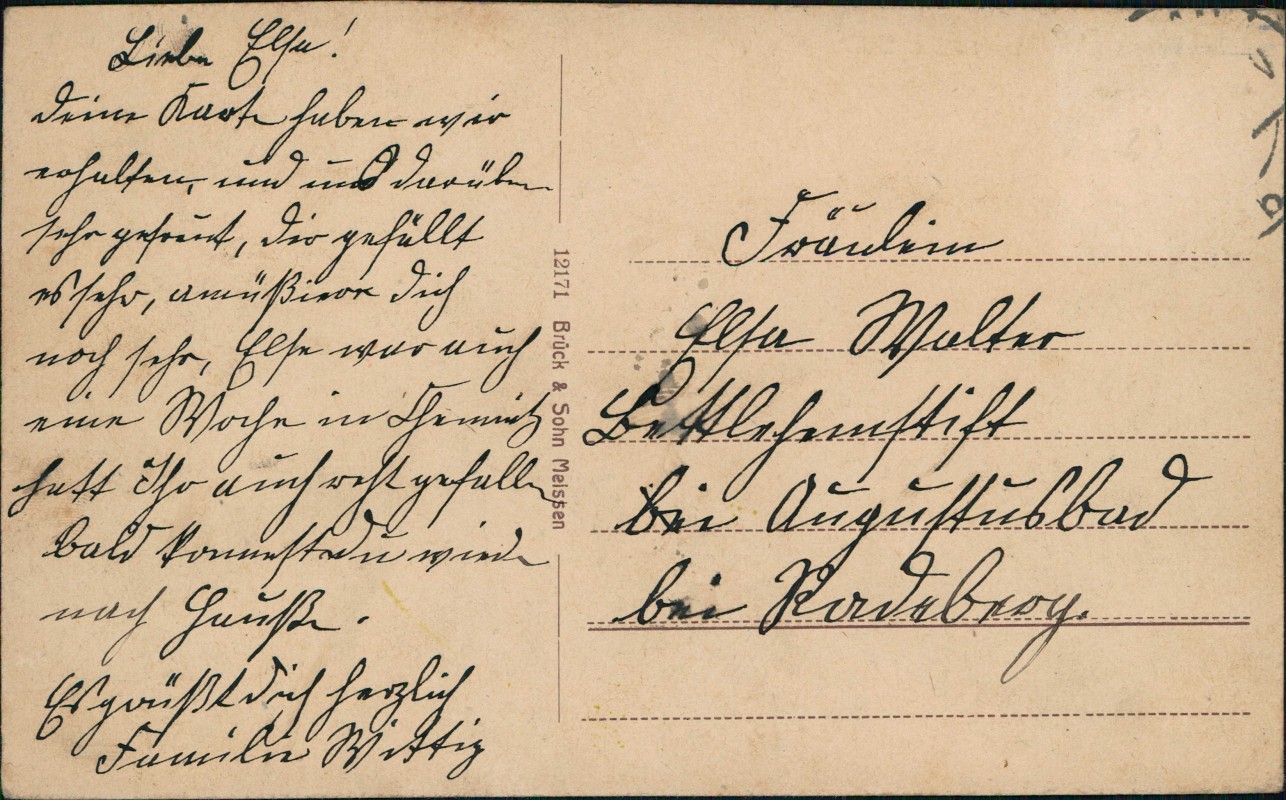 Liebe Elsa!
deine Karte haben wir
erhalten, und uns darüber
sehr gefreut, dir gefällt
es sehr, amüßiere dich
noch sehr, Else war auch
eine Woche in Chemnitz
hatt Ihr auch reht gefallen
bald kommest du wieder
nach Hauße.
Es grüßt dich herzlich
Familie Wittig
12171 Brück & Sohn Meissen
Fräulein
Elsa Walter
Bethlehemstift
bei Augustusbad
bei Radeberg.